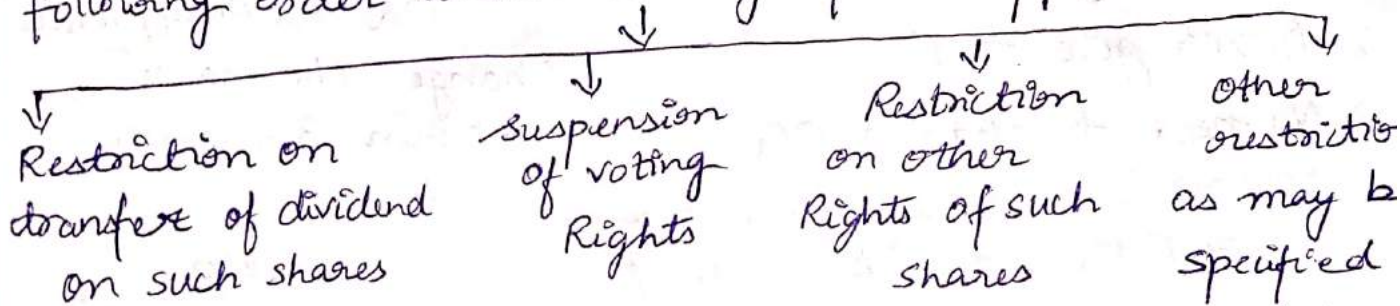 following order
Restriction on
transfer of dividend
on such shares
suspension
of voting
Rights
Restriction
on other
Rights of such
shares
other
restrictio
as may b
specified